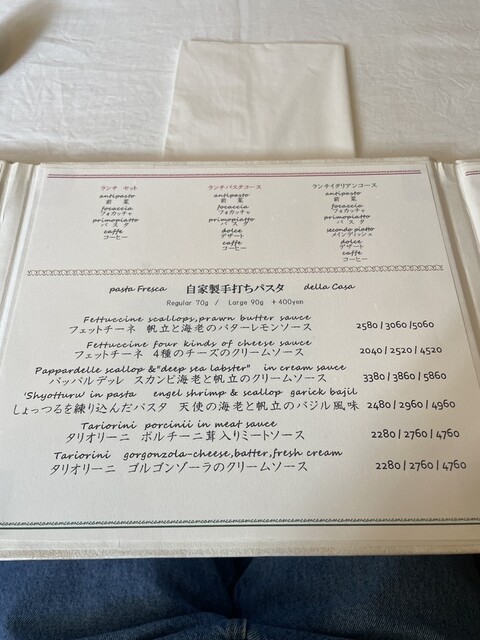 ランチ セット
antipasto
前 菜
focaccia
フォカッチャ
primopiatto
パ ス タ
caffe
コーヒー
ランチパスタコース
antipasto
前 菜
focaccia
フォカッチャ
primopiatto
パ ス タ
dolce
デザート
caffe
コーヒー
ランチイタリアンコース
antipasto
前 菜
focaccia
フォカッチャ
primopiatto
パ ス タ
secondo piatto
メインディッシュ
dolce
デザート
caffe
コーヒー
pasta Fresca 自家製手打ちパスタ della Casa
Regular 70g / Large 90g +400yen
Fettuccine scallops,prawn butter sauce
フェットチーネ 帆立と海老のバターレモンソース 2580/3060/5060
Fettuccine four kinds of cheese sauce
フェットチーネ 4種のチーズのクリームソース 2040/2520/4520
Pappardelle scallop &"deep sea labster" in cream sauce
パッパルデッレ スカンピ海老と帆立のクリームソース 3380/3860/5860
'Shyottsuru' in pasta engel shrimp & scallop garick bajil
しょっつるを練り込んだパスタ 天使の海老と帆立のバジル風味 2480/2960/4960
Tariorini porcinii in meat sauce
タリオリーニ ポルチーニ茸入りミートソース 2280/2760/4760
Tariorini gorgonzola-cheese,batter,fresh cream
タリオリーニ ゴルゴンゾーラのクリームソース 2280/2760/4760